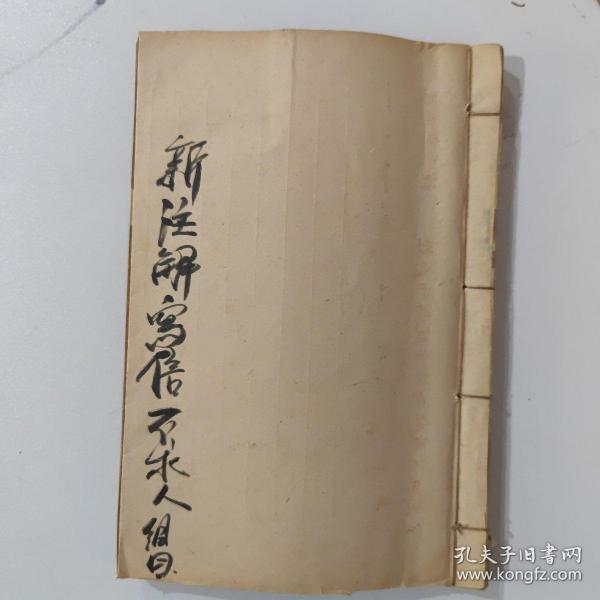 新注解寫信不求人
孔夫子旧书网
www.kongfz.com